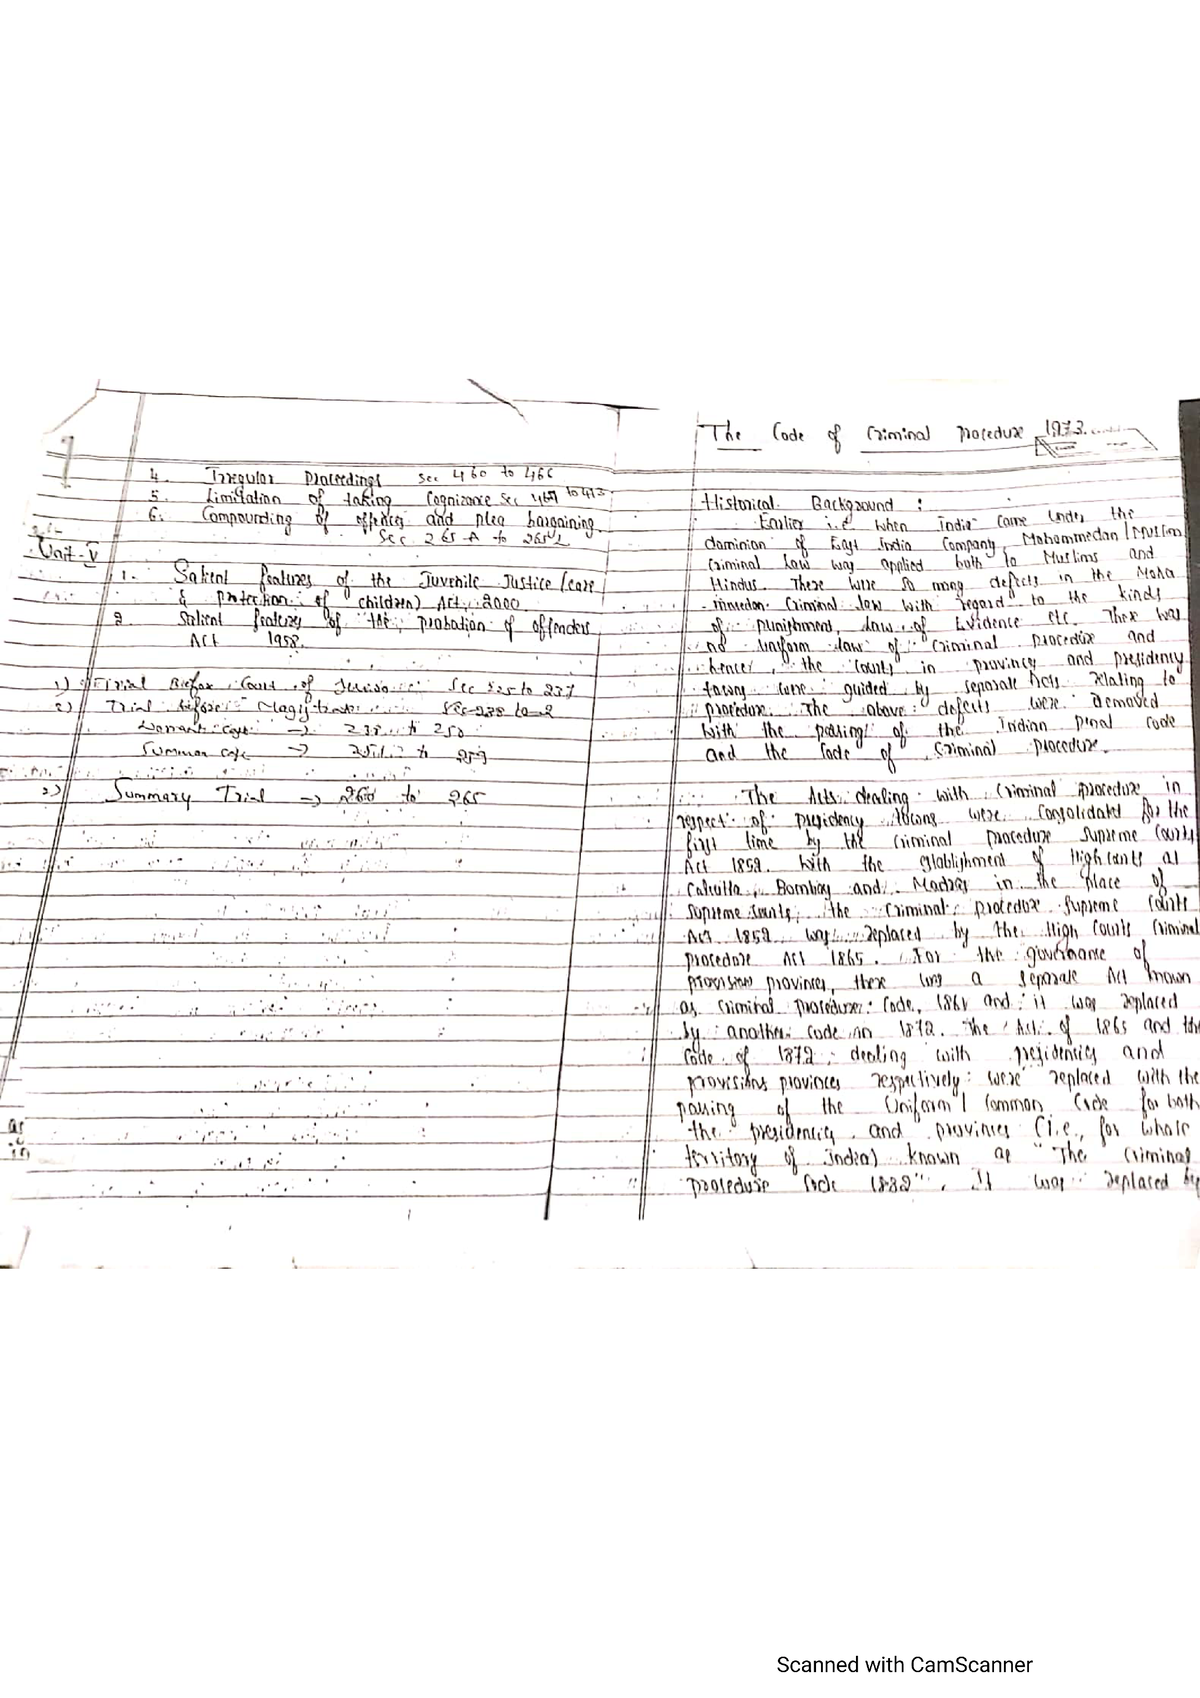 4. Irregular Proceedings Sec 460 to 466
5. Limitation of taking Cognizance Sec 467 to 473
6. Compounding of offences and plea bargaining
Sec 265-A to 265 L
Unit-V
1. Salient features of the Juvenile Justice (care
& protection of children) Act, 2000
2. Salient features of the probation of offenders
ACT 1958.
1) Trial Before Court of Session Sec 225 to 237
2) Trial before Magistrate
Warrant case → 238 to 250
Summon case → to 259
3) Summary Trial → 260 to 265
The Code of Criminal procedure 1973.
Historical Background :
Earlier i.e when India came under the
dominion of East India Company, Mohammedan / Muslim
Criminal law was applied both to Muslims and
Hindus. There were so many defects in the Moha
-mmedan Criminal law with regard to the kinds
of punishment, law of Evidence etc. There was
no Uniform law of Criminal procedure and
hence, the Courts in province and presidency
towns were guided by separate Acts relating to
procedure. The above defects were removed
with the passing of the Indian penal code
and the Code of Criminal procedure.
The Acts dealing with Criminal procedure in
respect of presidency towns were Consolidated for the
first time by the Criminal procedure Supreme Courts
Act 1852. With the establishment of High Courts at
Calcutta, Bombay and Madras in the place of
Supreme Courts, the Criminal procedure Supreme Courts
Act 1852 was replaced by the High Courts Criminal
procedure Act 1865. For the governance of
provinces, there was a separate Act known
as Criminal procedure Code, 1861 and it was replaced
by another Code in 1872. The Act of 1865 and the
Code of 1872 dealing with presidencies and
provinces respectively were replaced with the
passing of the Uniform / Common Code for both
the presidencies and provinces (i.e., for whole
territory of India) known as "The Criminal
procedure Code 1882". It was replaced by
Scanned with CamScanner